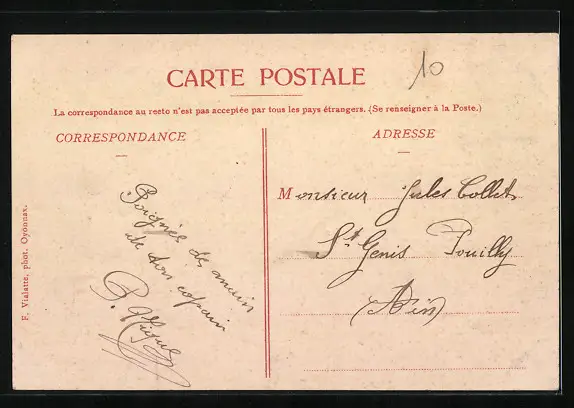 CARTE POSTALE
10
La correspondance au recto n'est pas acceptée par tous les pays étrangers. (Se renseigner à la Poste.)
CORRESPONDANCE
Poignée de main
de ton copain
F. Vialatte, phot. Oyonnax.
ADRESSE
Monsieur Jules Collet
St Genis Pouilly
Ain